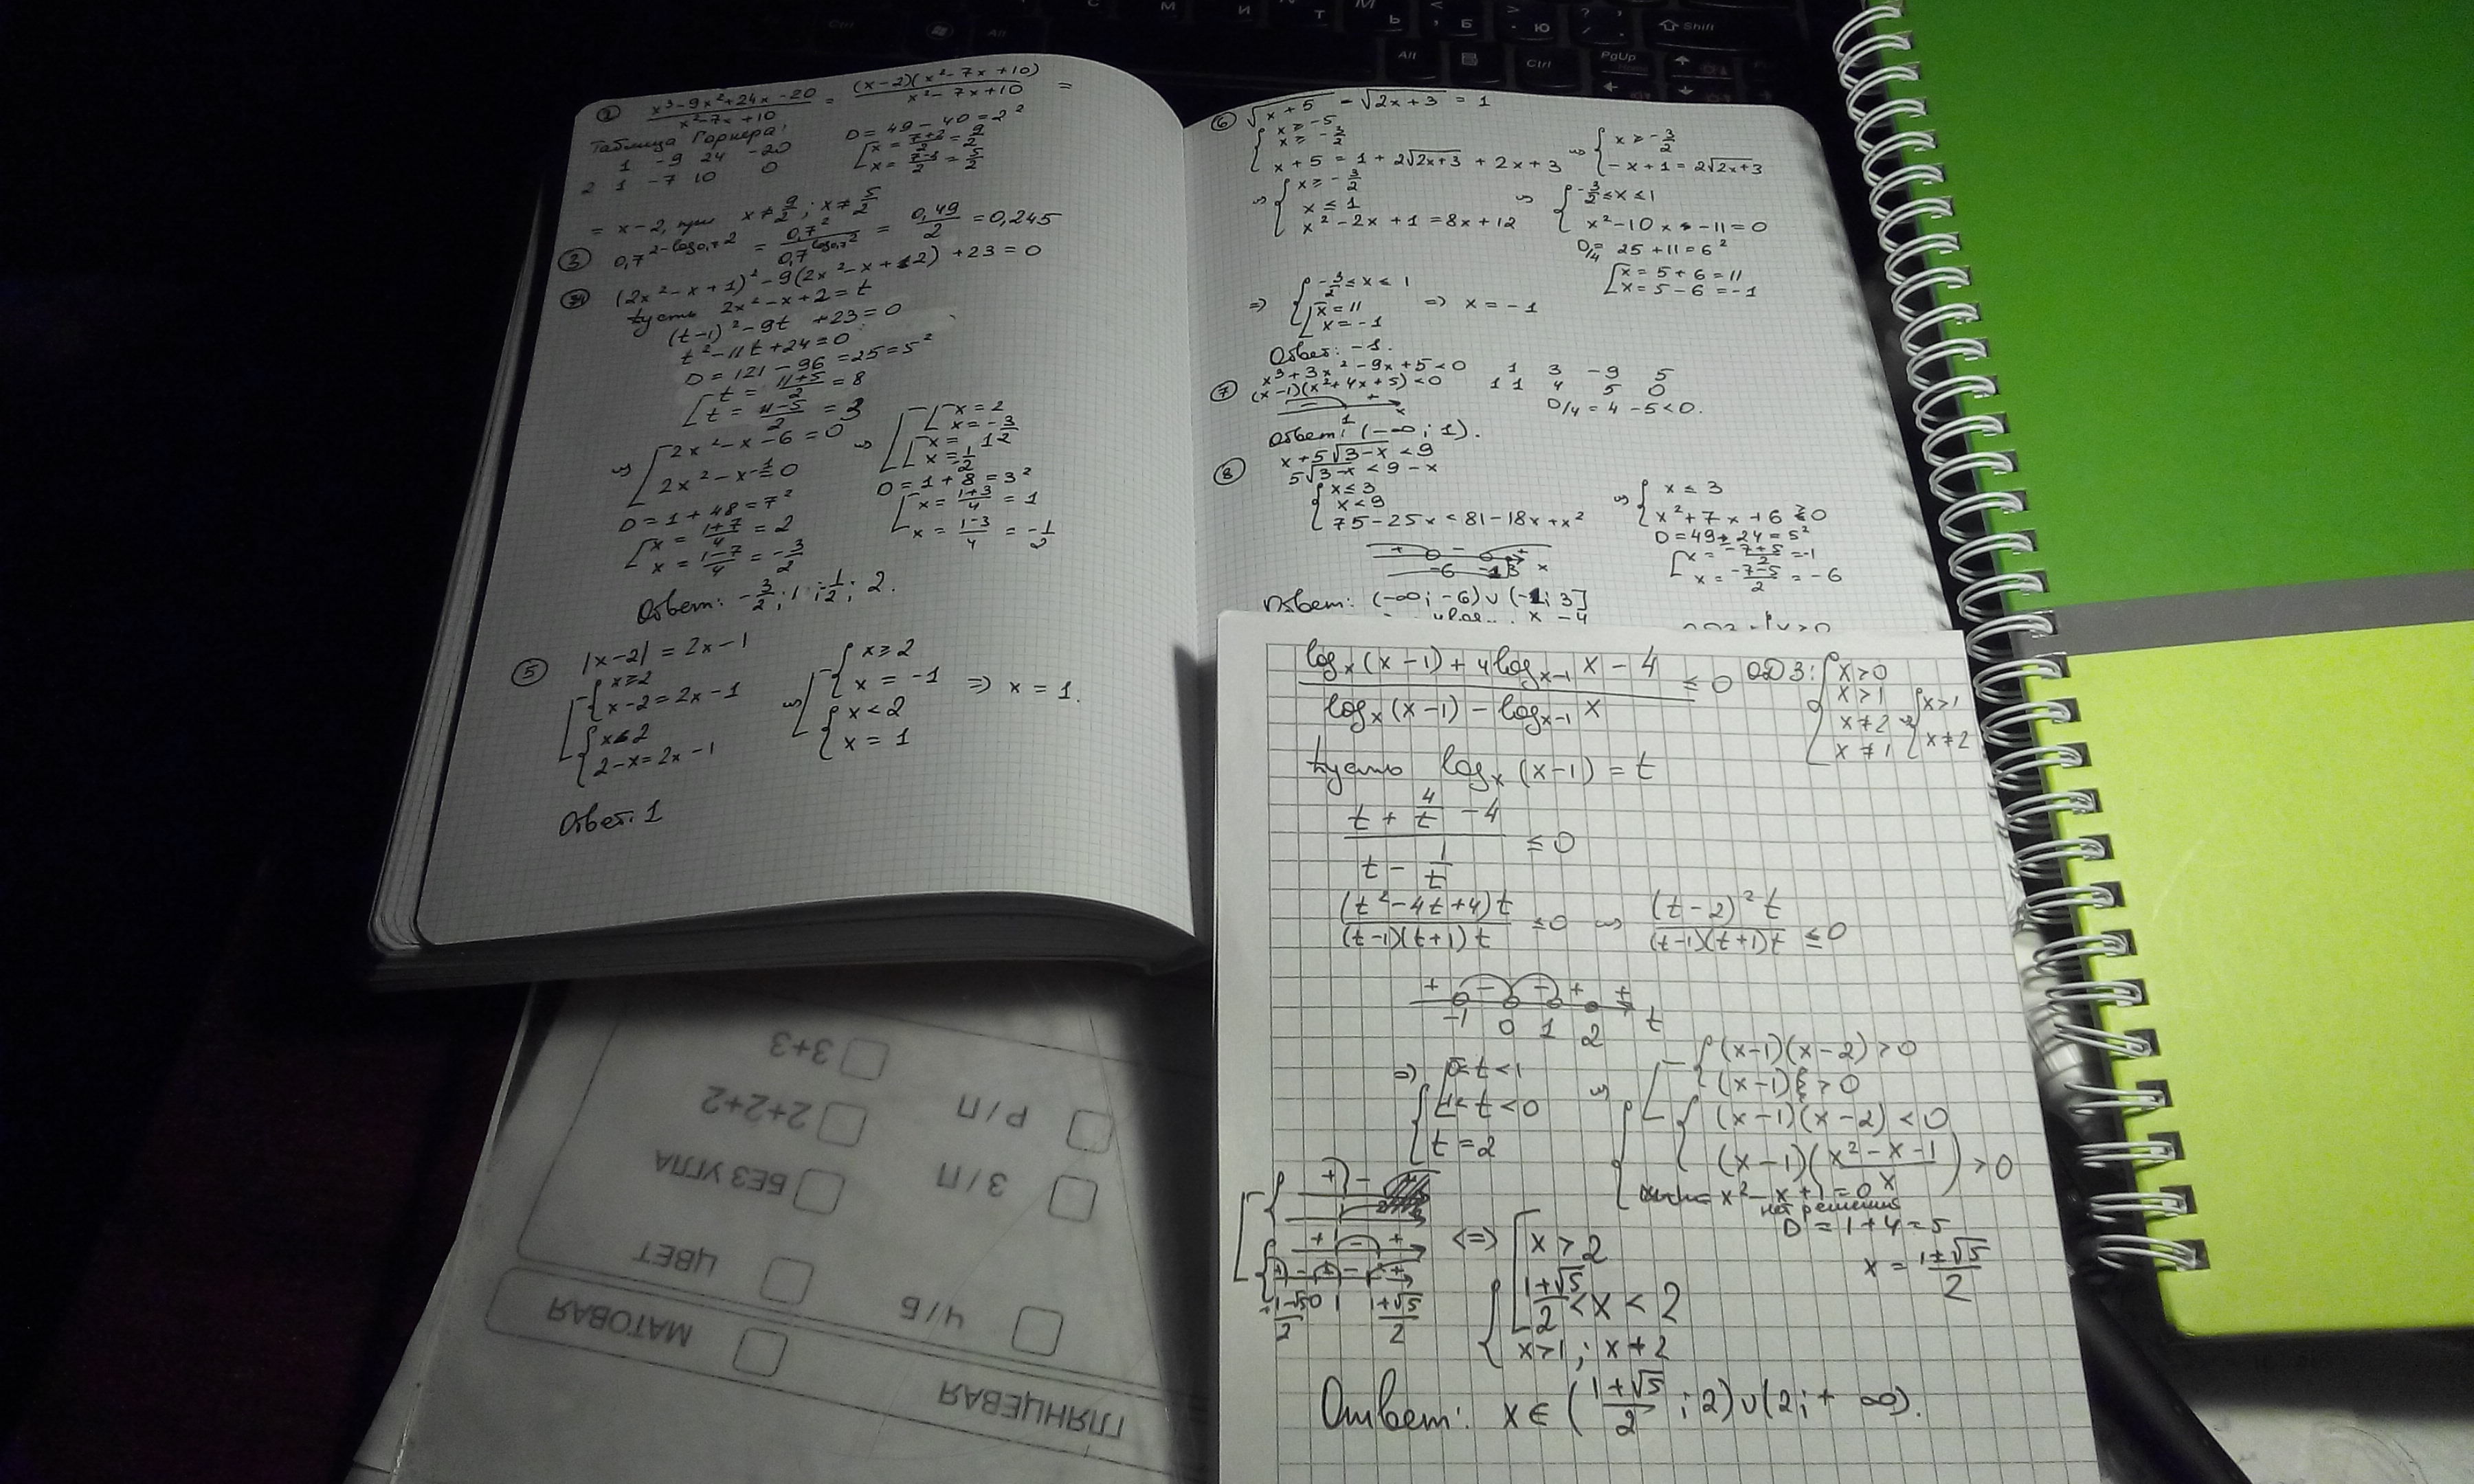 ② x³-9x²+24x-20 / x²-7x+10 = (x-2)(x²-7x+10) / x²-7x+10 =
Таблица Горнера:
1 -9 24 -20
2 1 -7 10 0
D = 49 - 40 = 2²
x = 7+2/2 = 9/2
x = 7-2/2 = 5/2
= x-2, при x ≠ 9/2; x ≠ 5/2
③ 0,7^(2-log₀,₇2) = 0,7² / 0,7^(log₀,₇2) = 0,49/2 = 0,245
(2x²-x+1)² - 9(2x²-x+2) + 23 = 0
Пусть 2x²-x+2 = t
(t-1)² - 9t + 23 = 0
t² - 11t + 24 = 0
D = 121 - 96 = 25 = 5²
t = 11+5/2 = 8
t = 11-5/2 = 3
⇔ 2x²-x-6 = 0
2x²-x-1 = 0
⇔ x = 2
x = -3/2
x = 1
x = -1/2
D = 1+48 = 7²
x = 1+7/4 = 2
x = 1-7/4 = -3/2
D = 1+8 = 3²
x = 1+3/4 = 1
x = 1-3/4 = -1/2
Ответ: -3/2; 1; -1/2; 2.
⑤ |x-2| = 2x-1
x≥2
x-2 = 2x-1
x<2
2-x = 2x-1
⇔ x≥2
x = -1
x<2
x = 1
⇒ x = 1.
Ответ: 1
⑥ √x+5 - √2x+3 = 1
x ≥ -5
x ≥ -3/2
x+5 = 1 + 2√2x+3 + 2x+3
⇔ x ≥ -3/2
-x+1 = 2√2x+3
⇔ x ≥ -3/2
x ≤ 1
x²-2x+1 = 8x+12
⇔ -3/2 ≤ x ≤ 1
x²-10x-11 = 0
D/4 = 25+11 = 6²
x = 5+6 = 11
x = 5-6 = -1
⇒ -3/2 ≤ x ≤ 1
x = 11
x = -1
⇒ x = -1
Ответ: -1.
⑦ x³+3x²-9x+5 < 0
(x-1)(x²+4x+5) < 0
1 3 -9 5
1 1 4 5 0
D/4 = 4-5 < 0.
- + x
1
Ответ: (-∞; 1).
⑧ x+5√3-x < 9
5√3-x < 9-x
x ≤ 3
x < 9
75-25x < 81-18x+x²
⇔ x ≤ 3
x²+7x+6 > 0
D = 49-24 = 5²
x = -7+5/2 = -1
x = -7-5/2 = -6
+ - +
-6 -1 3 x
Ответ: (-∞; -6)∪(-1; 3]
logₓ(x-1) + 4logₓ₋₁ x - 4 / logₓ(x-1) - logₓ₋₁ x ≤ 0
ОДЗ: x>0
x>1
x≠2
x≠1
⇔ x>1
x≠2
Пусть logₓ(x-1) = t
t + 4/t - 4 / t - 1/t ≤ 0
(t²-4t+4)t / (t-1)(t+1)t ≤ 0 ⇔ (t-2)²t / (t-1)(t+1)t ≤ 0
+ - - + +
-1 0 1 2 t
⇒ 0<t<1
-1<t<0
t = 2
⇔ (x-1)(x-2) > 0
(x-1) > 0
(x-1)(x-2) < 0
(x-1)(x²-x-1 / x) > 0
x²-x+1 = 0
нет решения
D = 1+4 = 5
x = 1±√5/2
<=> x > 2
1+√5/2 < x < 2
x>1; x≠2
Ответ: x ∈ (1+√5/2; 2)∪(2; +∞).
3+3
2+2+2
Р/П
БЕЗ УГЛА
З/П
ЦВЕТ
Ч/Б
МАТОВАЯ
ГЛЯНЦЕВАЯ
Shift
PgUp
Alt
Ctrl